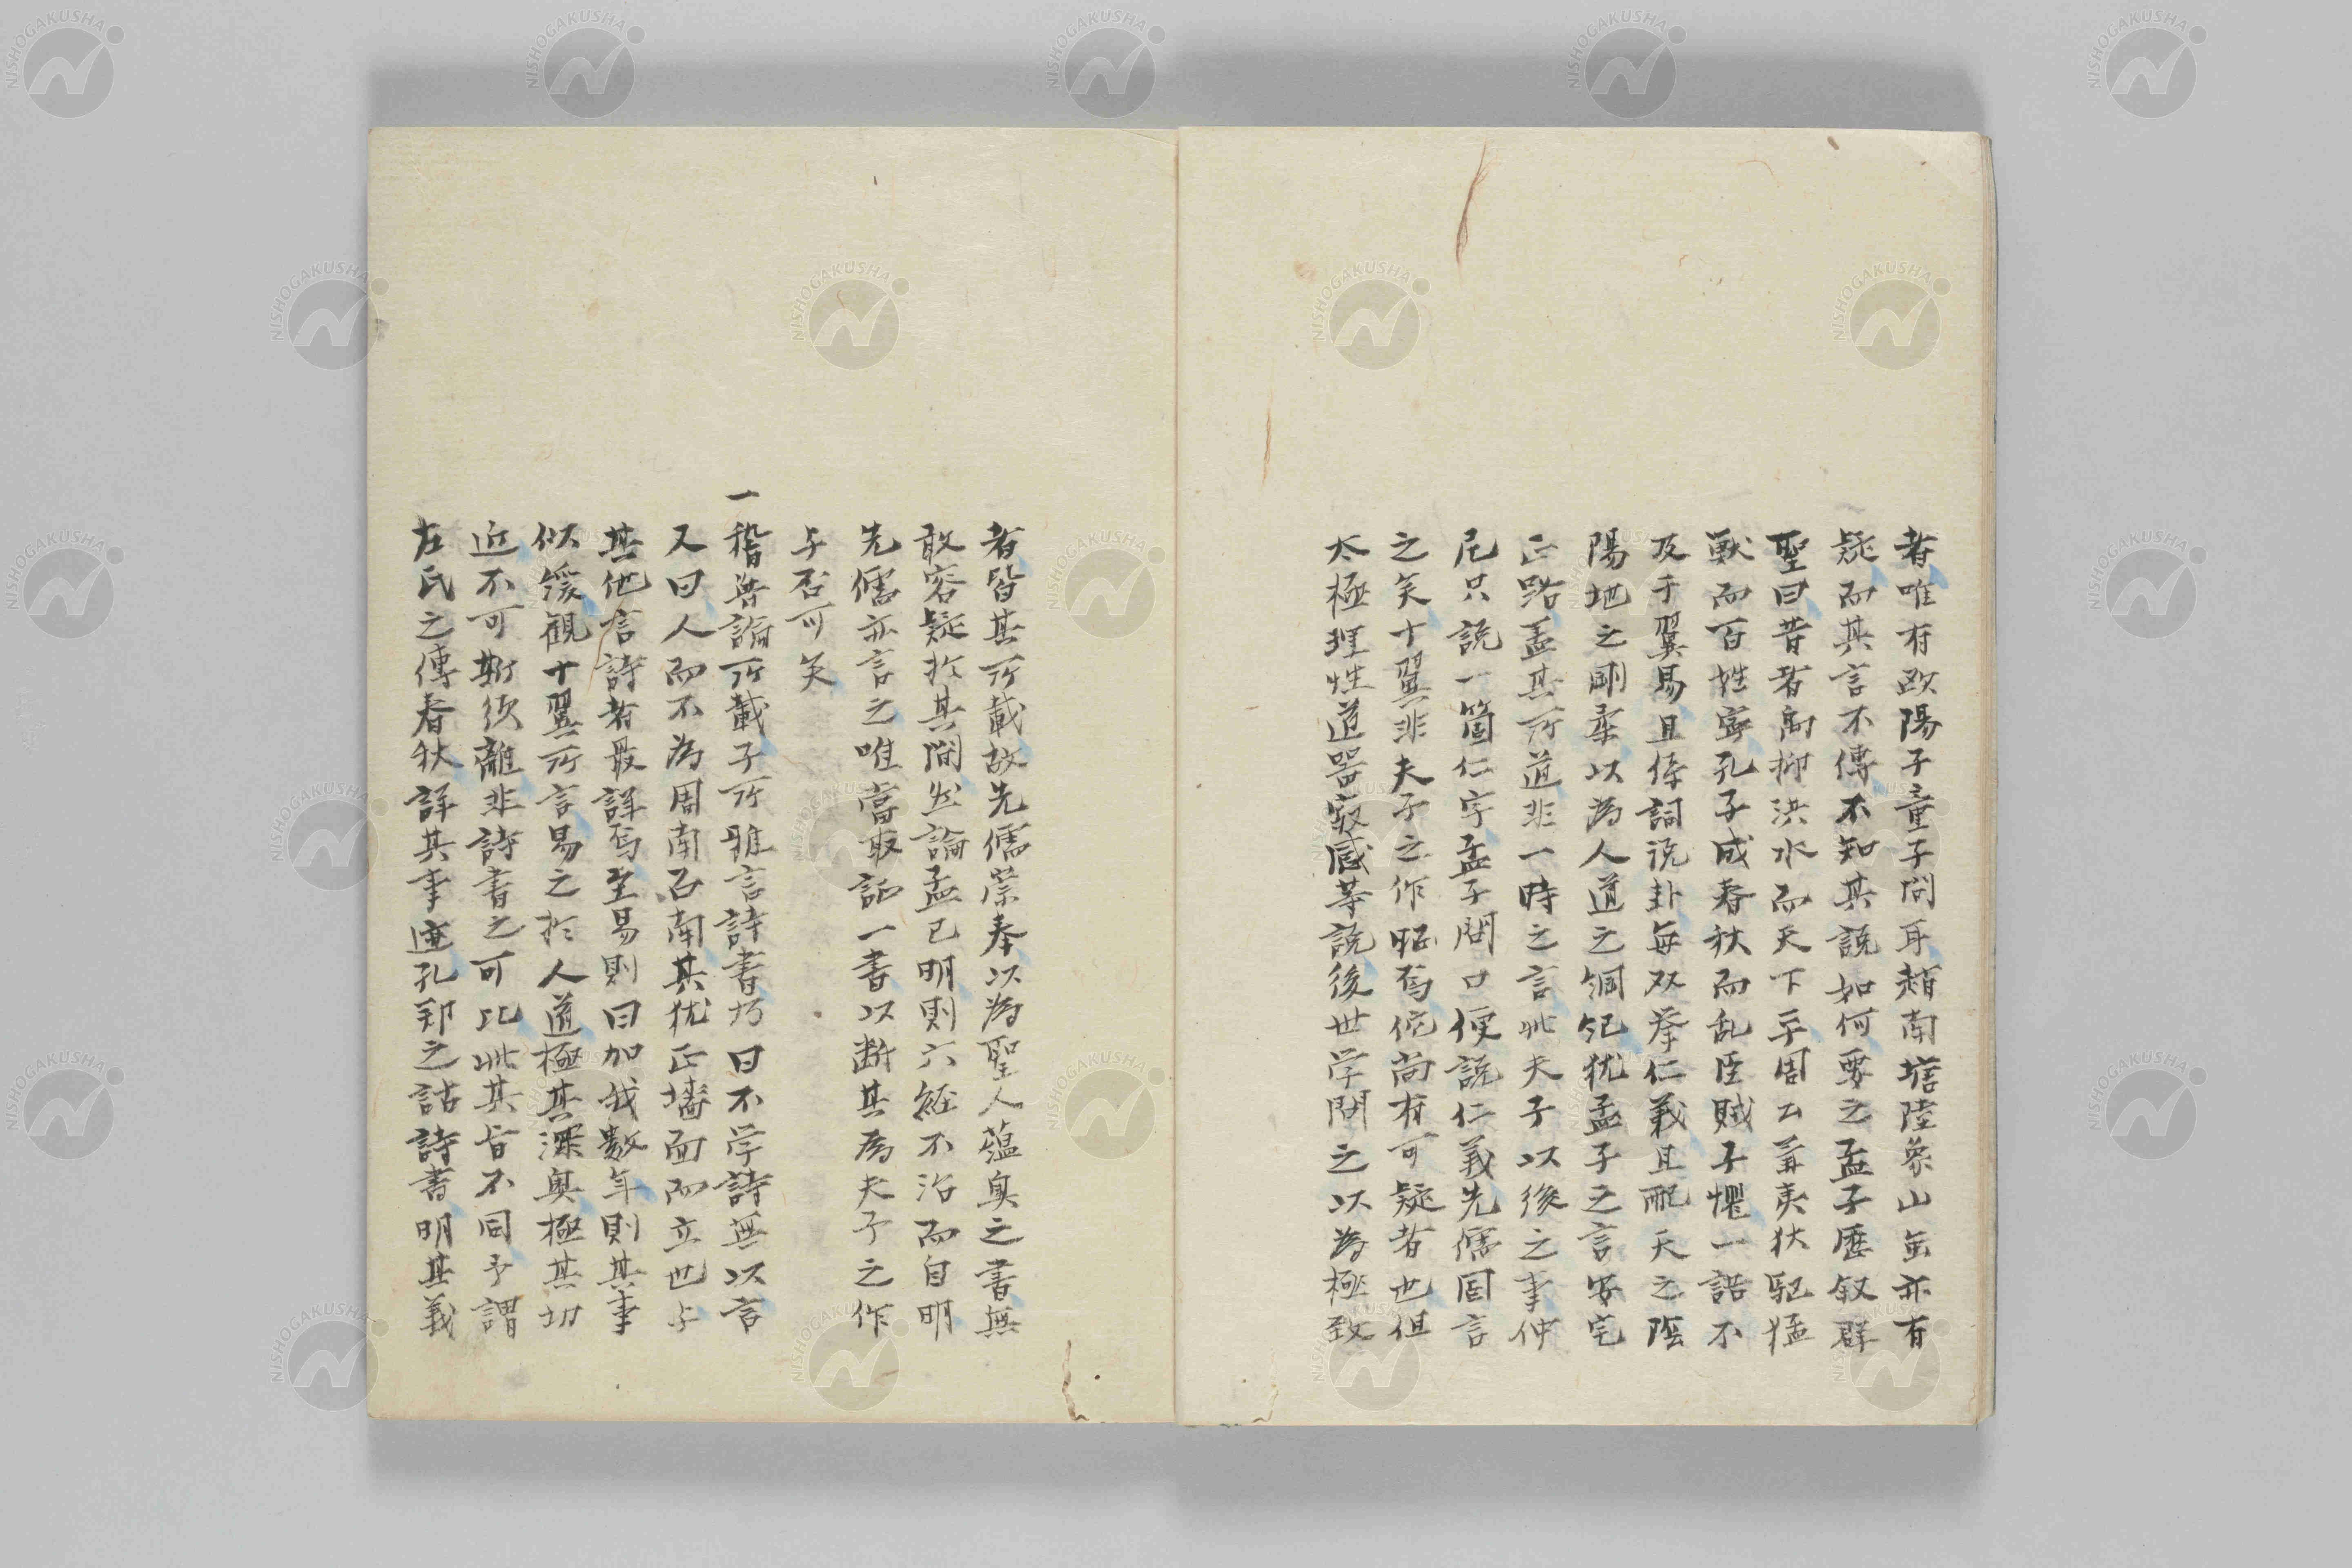 者唯有欧陽子童子問耳趙南塘陸象山虽亦有
疑而其言不傳不知其説如何要之孟子歴叙群
聖曰昔者禹抑洪水而天下平周公兼夷狄駆猛
獣而百姓寧孔子成春秋而乱臣賊子懼一語不
及于翼易且係詞説卦毎双挙仁義且配天之陰
陽地之剛柔以為人道之綱紀犹孟子之言安宅
正路蓋其所道非一時之言此夫子以後之事仲
尼只説一箇仁字孟子開口便説仁義先儒固言
之矣十翼非夫子之作昭焉然尚有可疑者也但
太極理性道器寂感等説後世学問之以為極致
者皆其所載故先儒崇奉以為聖人蘊奥之書無
敢容疑於其間然論孟已明則六経不治而自明
先儒亦言之唯當取語一書以断其為夫子之作
与否可矣
一稽諸論所載子所雅言詩書又曰不学詩無以言
又曰人而不為周南召南其犹正墻面而立也与
其他言詩者最詳焉至易則曰加我數年則其事
似緩觀十翼所言易之於人道極其深奥極其切
近不可斯須離非詩書之可比此其旨不同予謂
左氏之傳春秋詳其事迹孔鄭之詁詩書明其義